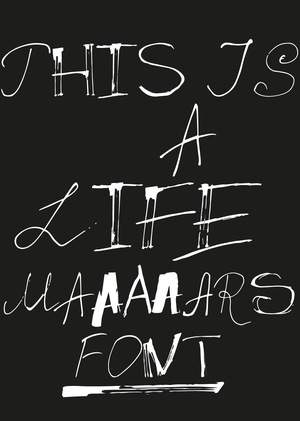 THIS IS
A
LIFE
MAAAAARS
FONT